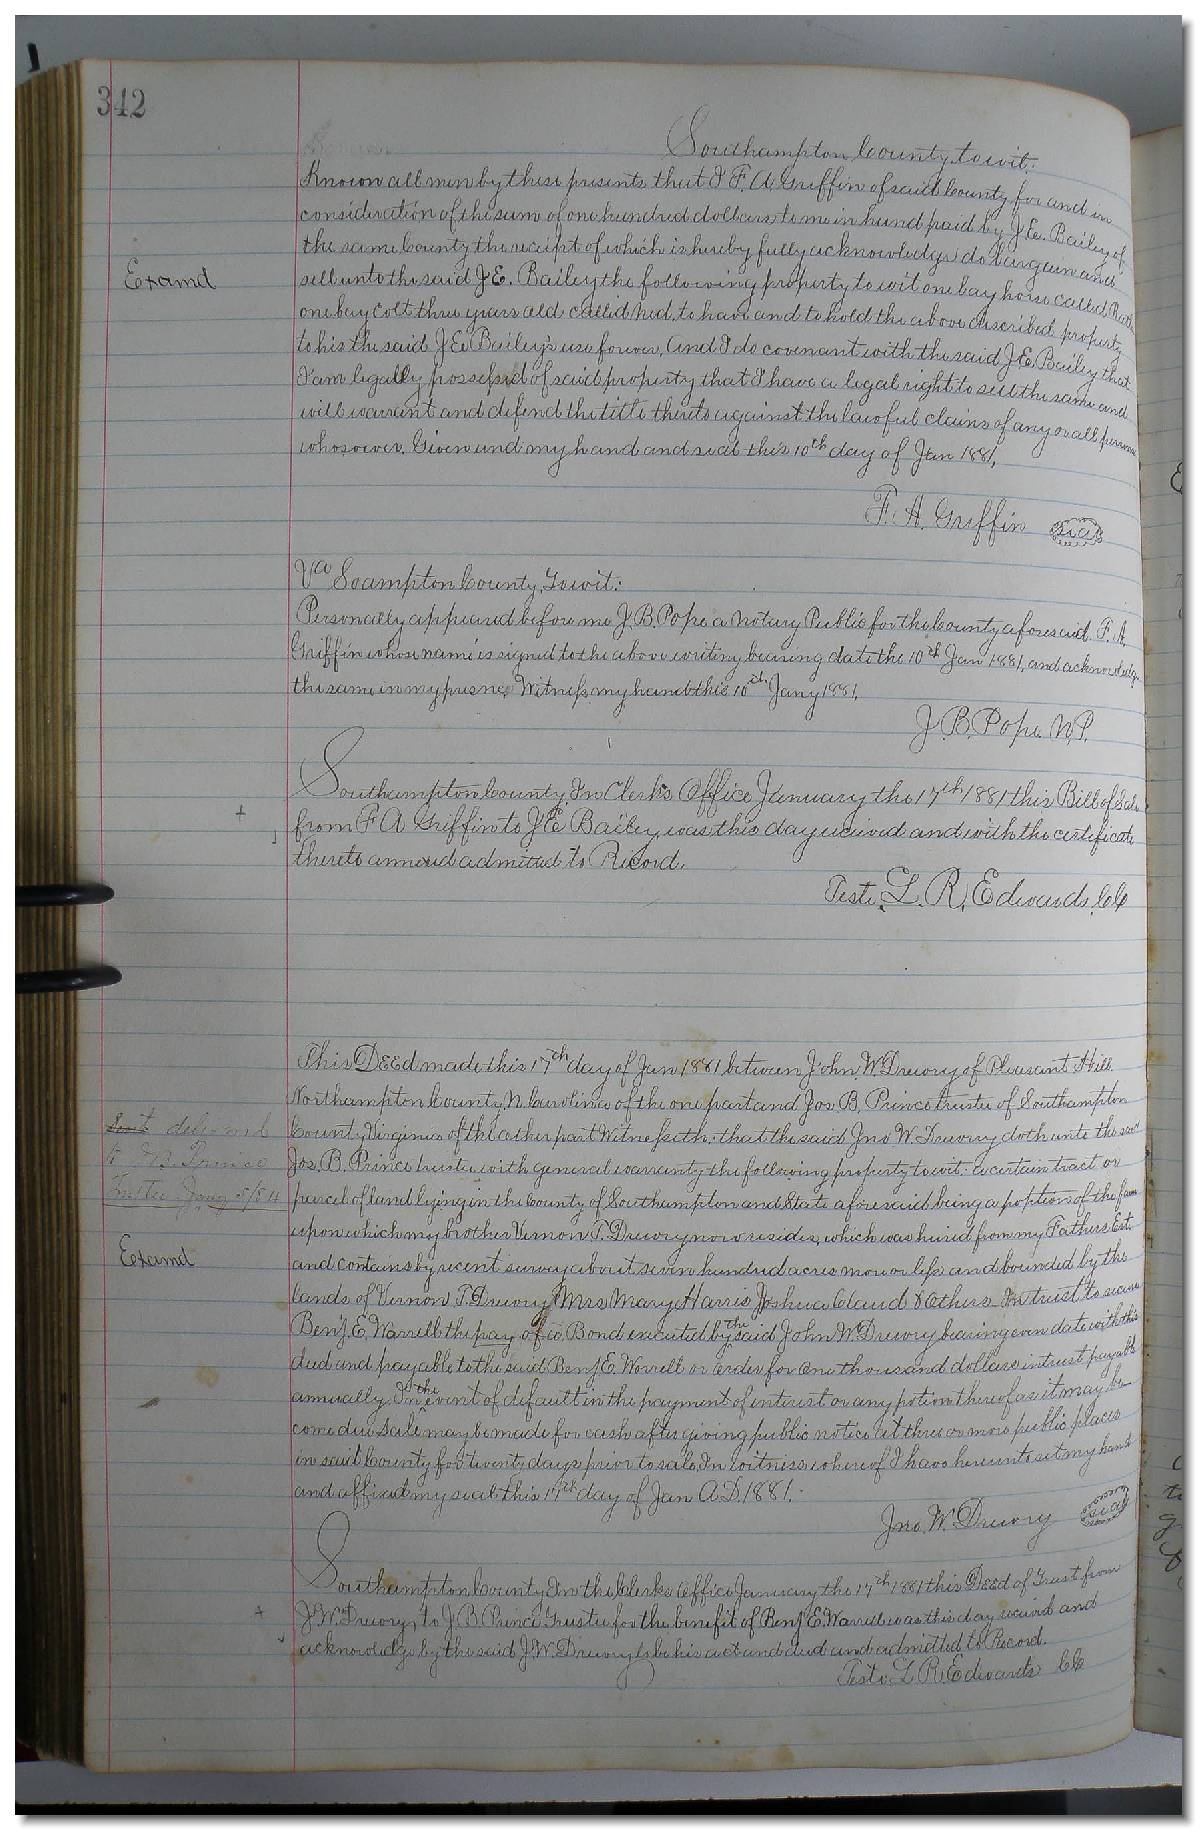 342
Southampton County, to wit:
Known all men by these presents that I F. A. Griffin of said County for and in
consideration of the sum of one hundred dollars to me in hand paid by J. E. Bailey of
the same County the receipt of which is hereby fully acknowledge do bargain and
Examd
sell unto the said J. E. Bailey the following property to wit one bay horse called
one bay colt three years old called Ned, to have and to hold the above described property
to his the said J. E. Bailey's use forever. And I do covenant with the said J. E. Bailey that
I am legally possessed of said property that I have a legal right to sell the same and
will warrant and defend the title thereto against the lawful claims of any or all persons
whosoever. Given und my hand and seal this 10th day of Jan 1881,
F. A. Griffin seal
Va Soampton County, To wit:
Personally appeared before me J. B. Pope a Notary Public for the County aforesaid F. A.
Griffin whose name is signed to the above writing bearing date the 10th Jan 1881, and acknowledge
the same in my presnce Witness my hand this 10th Jany 1881,
J. B. Pope N.P.
Southampton County, In Clerk's Office January the 17th 1881 this Bill of Sale
from F A Griffin to J E Bailey was this day received and with the certificate
thereto annexed admitted to Record.
Teste, L. R. Edwards, CC
This DEED made this 17th day of Jan 1881 between John W. Drewry of Pleasant Hill
Northampton County, N. Carolina of the one part and Jos B. Prince trustee of Southampton
Sent delivered
County Virginia of the other part Witnesseth: that the said Jno W. Drewry doth unto the said
to B. Prince
Jos. B. Prince trustee with general warranty the following property to wit: a certain tract or
Trustee Jany
parcel of land lying in the County of Southampton and State aforesaid being a poption of the farm
upon which my brother Vernon T. Drewry now resides, which was hired from my Fathers Est.
Examd
and contains by recent survey about seven hundred acres more or less and bounded by the
lands of Vernon T. Drewry Mrs Mary Harris Joshua Claud & Others In trust to secure
Benj. E. Warrell the pay of a Bond executed by the said John W. Drewry bearing even date with this
deed and payable to the said Benj E. Worrell or order for one thousand dollars intrest payable
annually. In the event of default in the payment of interest or any potion thereof as it may be
come due sale may be made for cash after giving public notice at three or more public places
in said County for twenty days prior to sale. In witness where of I have hereunto set my hand
and affixed my seal this 17th day of Jan A.D. 1881.
Jno. W. Drewry seal
Southampton County, In the Clerks Office January the 17th 1881 this DEED of Trust from
J. W. Drewry, to J. B. Prince Trustee for the benefit of Benj E. Warrell was this day received and
acknowledge by the said J. W. Drewry to be his act and deed and admitted to Record.
Teste L. R. Edwards CC